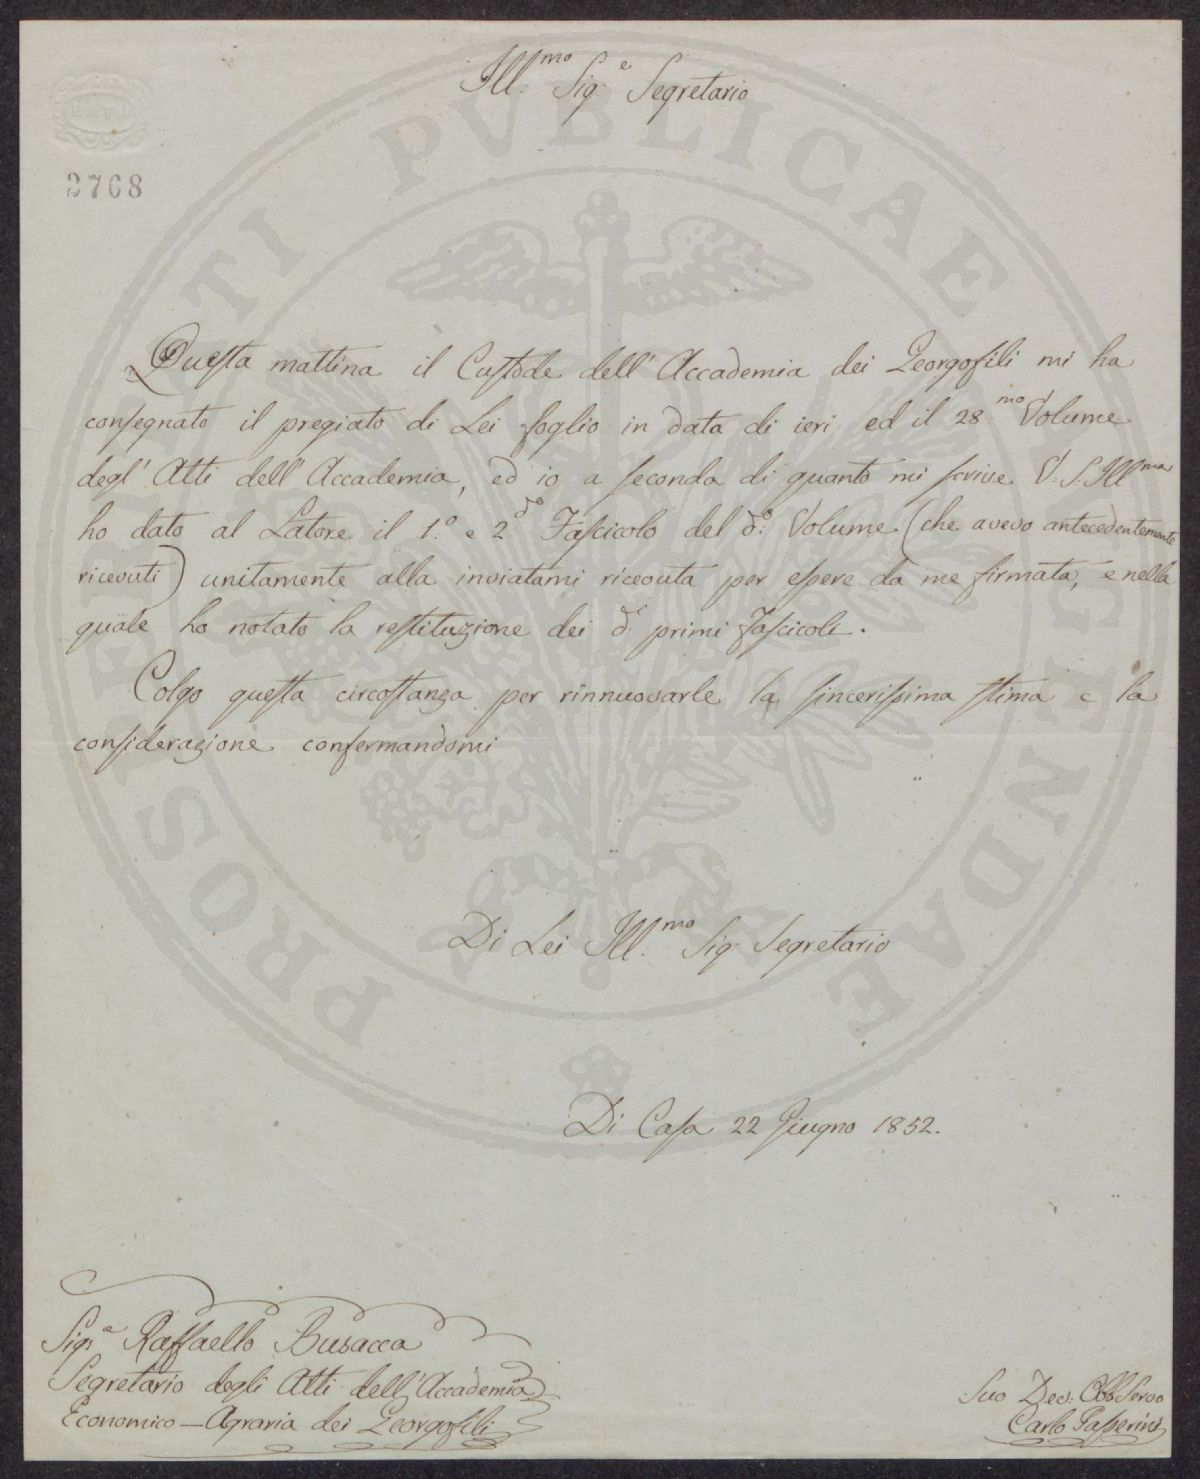 Ill.mo Sig.e Segretario
BATH
2768
Questa mattina il Custode dell'Accademia dei Georgofili mi ha
consegnato il pregiato di Lei foglio in data di ieri ed il 28.mo Volume
degl'Atti dell'Accademia, ed io a seconda di quanto mi scrisse V.S. Ill.ma
ho dato al Latore il 1.o e 2.do Fascicolo del d.o Volume (che avevo antecedentemente
ricevuti) unitamente alla inviatami ricevuta per essere da me firmata, e nella
quale ho notato la restituzione dei d.i primi Fascicoli.
Colgo questa circostanza per rinnuovarle la sincerissima stima e la
considerazione confermandomi
Di Lei Ill.mo Sig. Segretario
Di Casa 22 Giugno 1852.
Sig.e Raffaello Busacca
Segretario degli Atti dell'Accademia
Economico-Agraria dei Georgofili
Suo Dev. Obb Servo
Carlo Passerini
PROSPERITATI PVBLICAE AVGENDAE